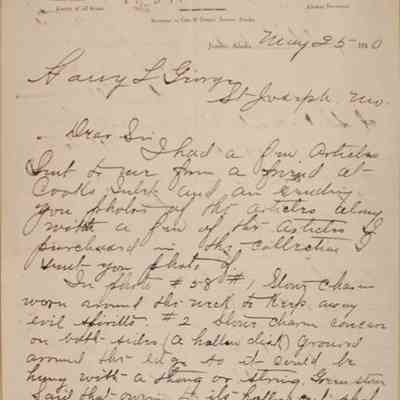 Juneau, Alaska, May 25 1910
Harry L George
St Joseph, Mo.
Dear Sir
I had a few Articles
Sent to me from a friend at
Cooks Inlet and am sending
you photos of the articles along
with a few of the Articles I
purchased in the collection I
sent you photos of.
In photo #58 #1 Stone charm
worn around the neck to keep away
evil spirits #2 Stone charm concave
on both sides (a hollow disk) grooved
around the edge so it could be
hung with a thong or string, Green stone